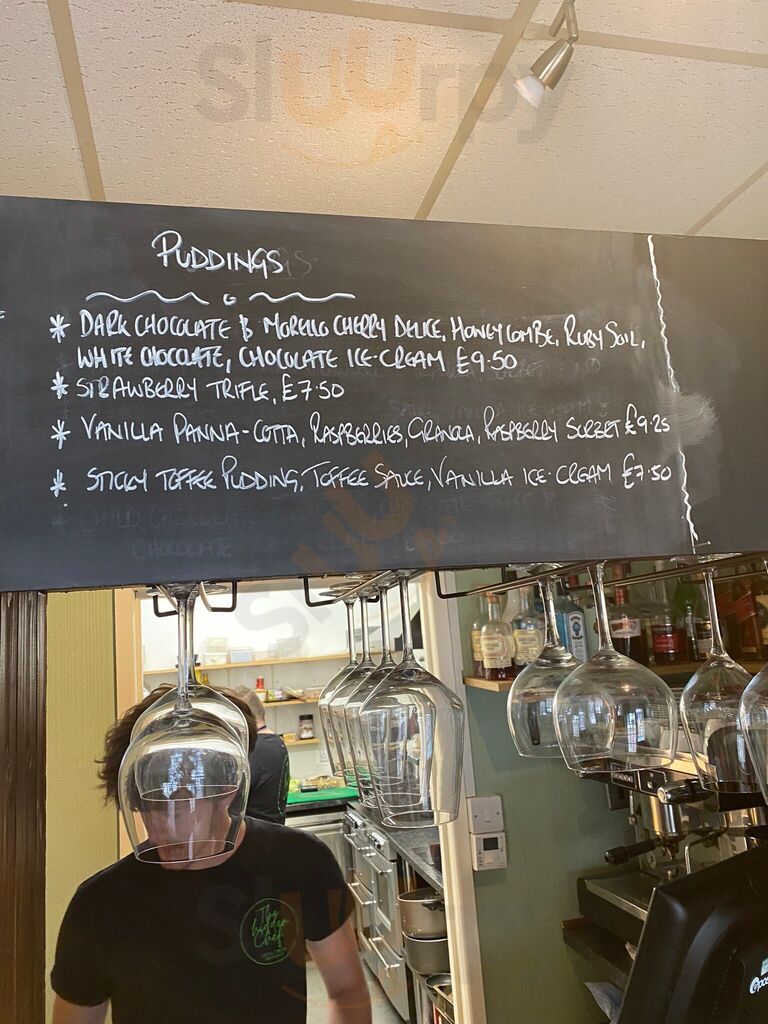 Sluurpy
PUDDINGS
* DARK CHOCOLATE & MORELLO CHERRY DELICE, HONEYCOMBE, RUBY SOIL,
WHITE CHOCOLATE, CHOCOLATE ICE-CREAM £9.50
* STRAWBERRY TRIFLE, £7.50
* VANILLA PANNA-COTTA, RASPBERRIES, GRANOLA, RASPBERRY SORBET £9.25
* STICKY TOFFEE PUDDING, TOFFEE SAUCE, VANILLA ICE-CREAM £7.50
CHOCOLATE
Chef